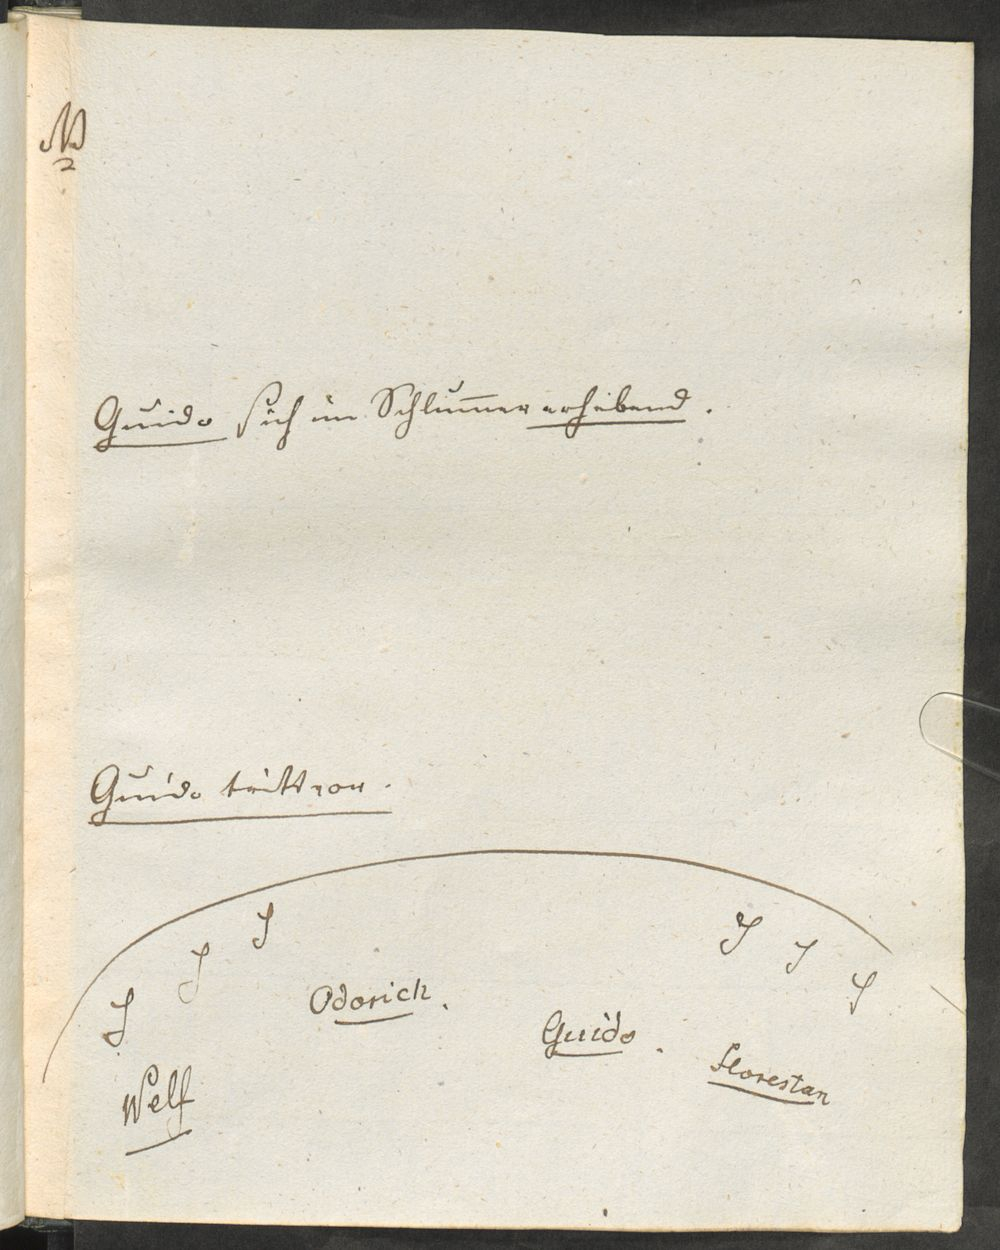 NB
Guido sich im Schlum̅er erhebend.
Guido tritt vor.
Odorich.
Guido.
Florestan
Welf